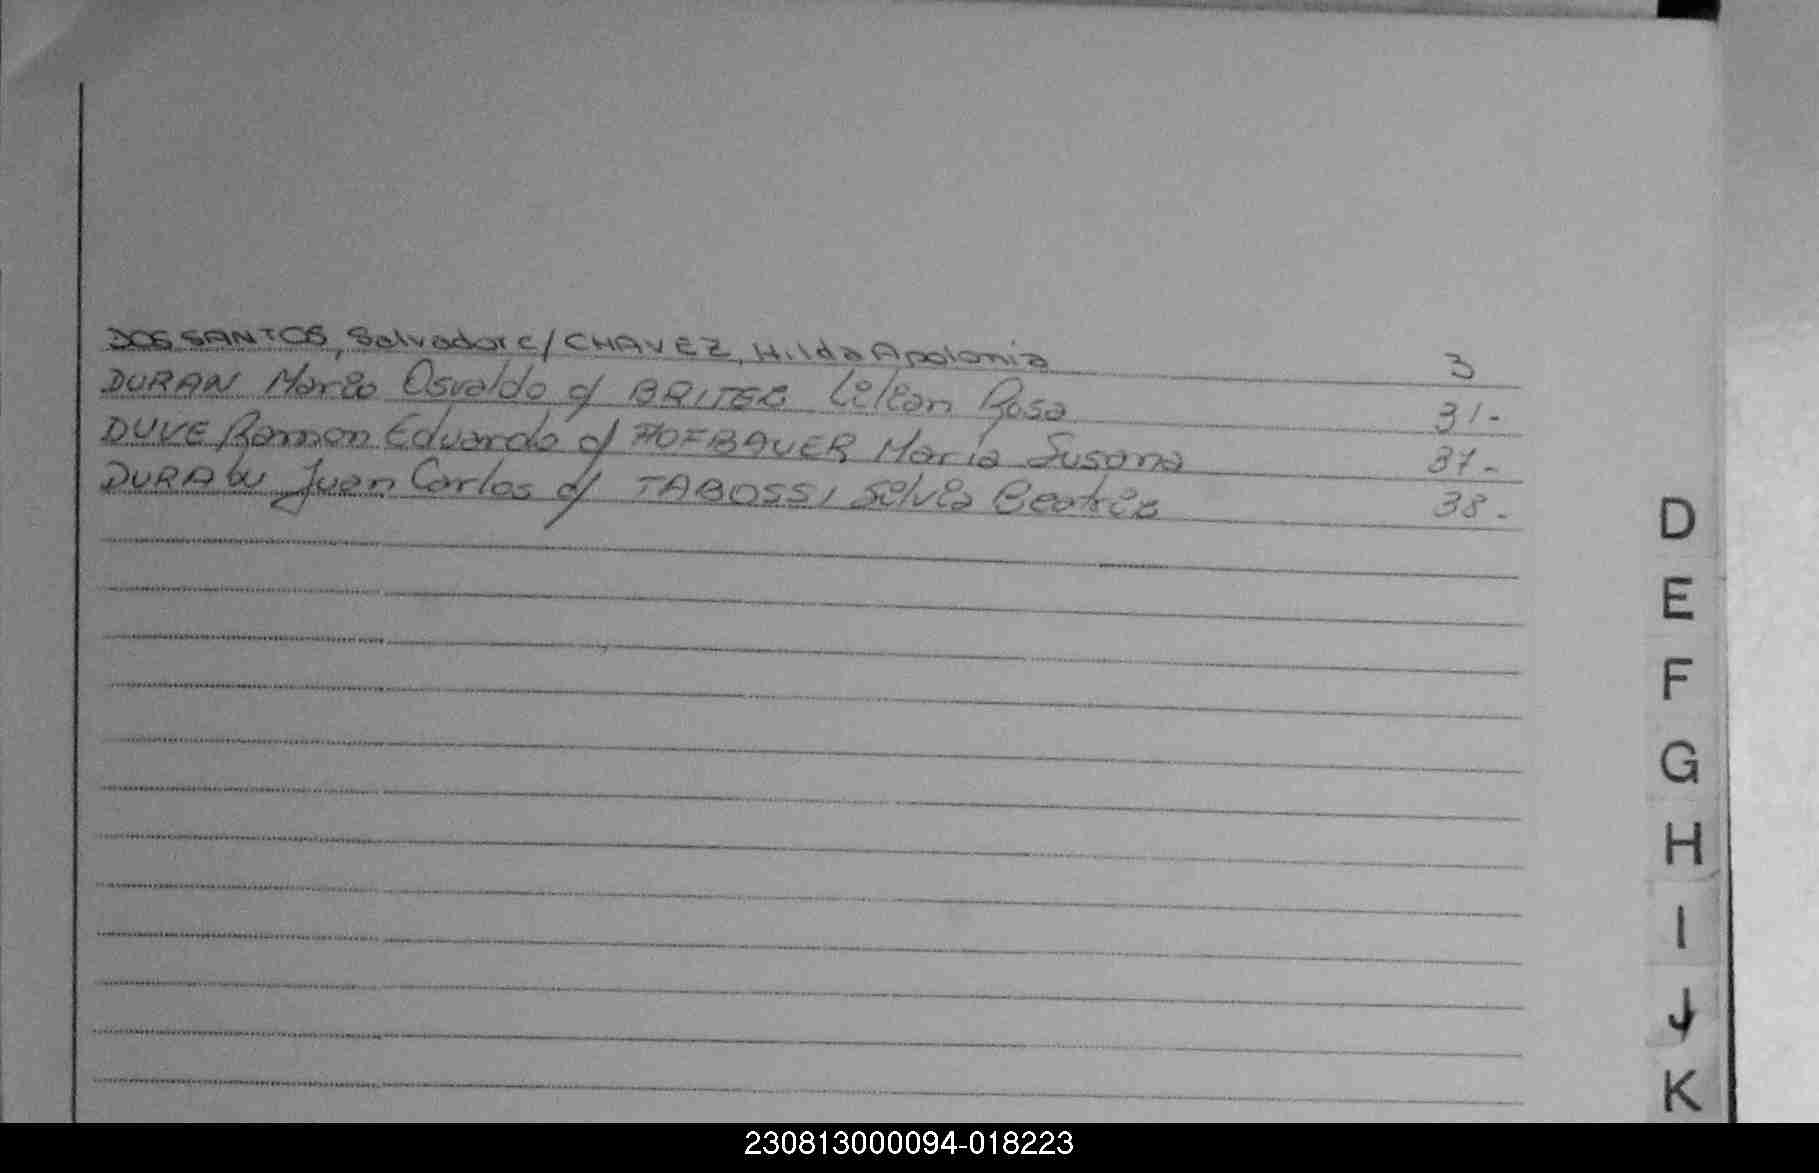 DOS SANTOS, Salvador c/ CHAVEZ, Hilda Apolonia 3
DURAN Mario Osvaldo c/ BRITES Lilian Rosa 31-
DUVE Ramon Eduardo c/ HOFBAUER María Susana 37-
Juan Carlos c/ TABOSSI Silvia Beatriz 38-
D
E
F
G
H
I
J
K
230813000094-018223